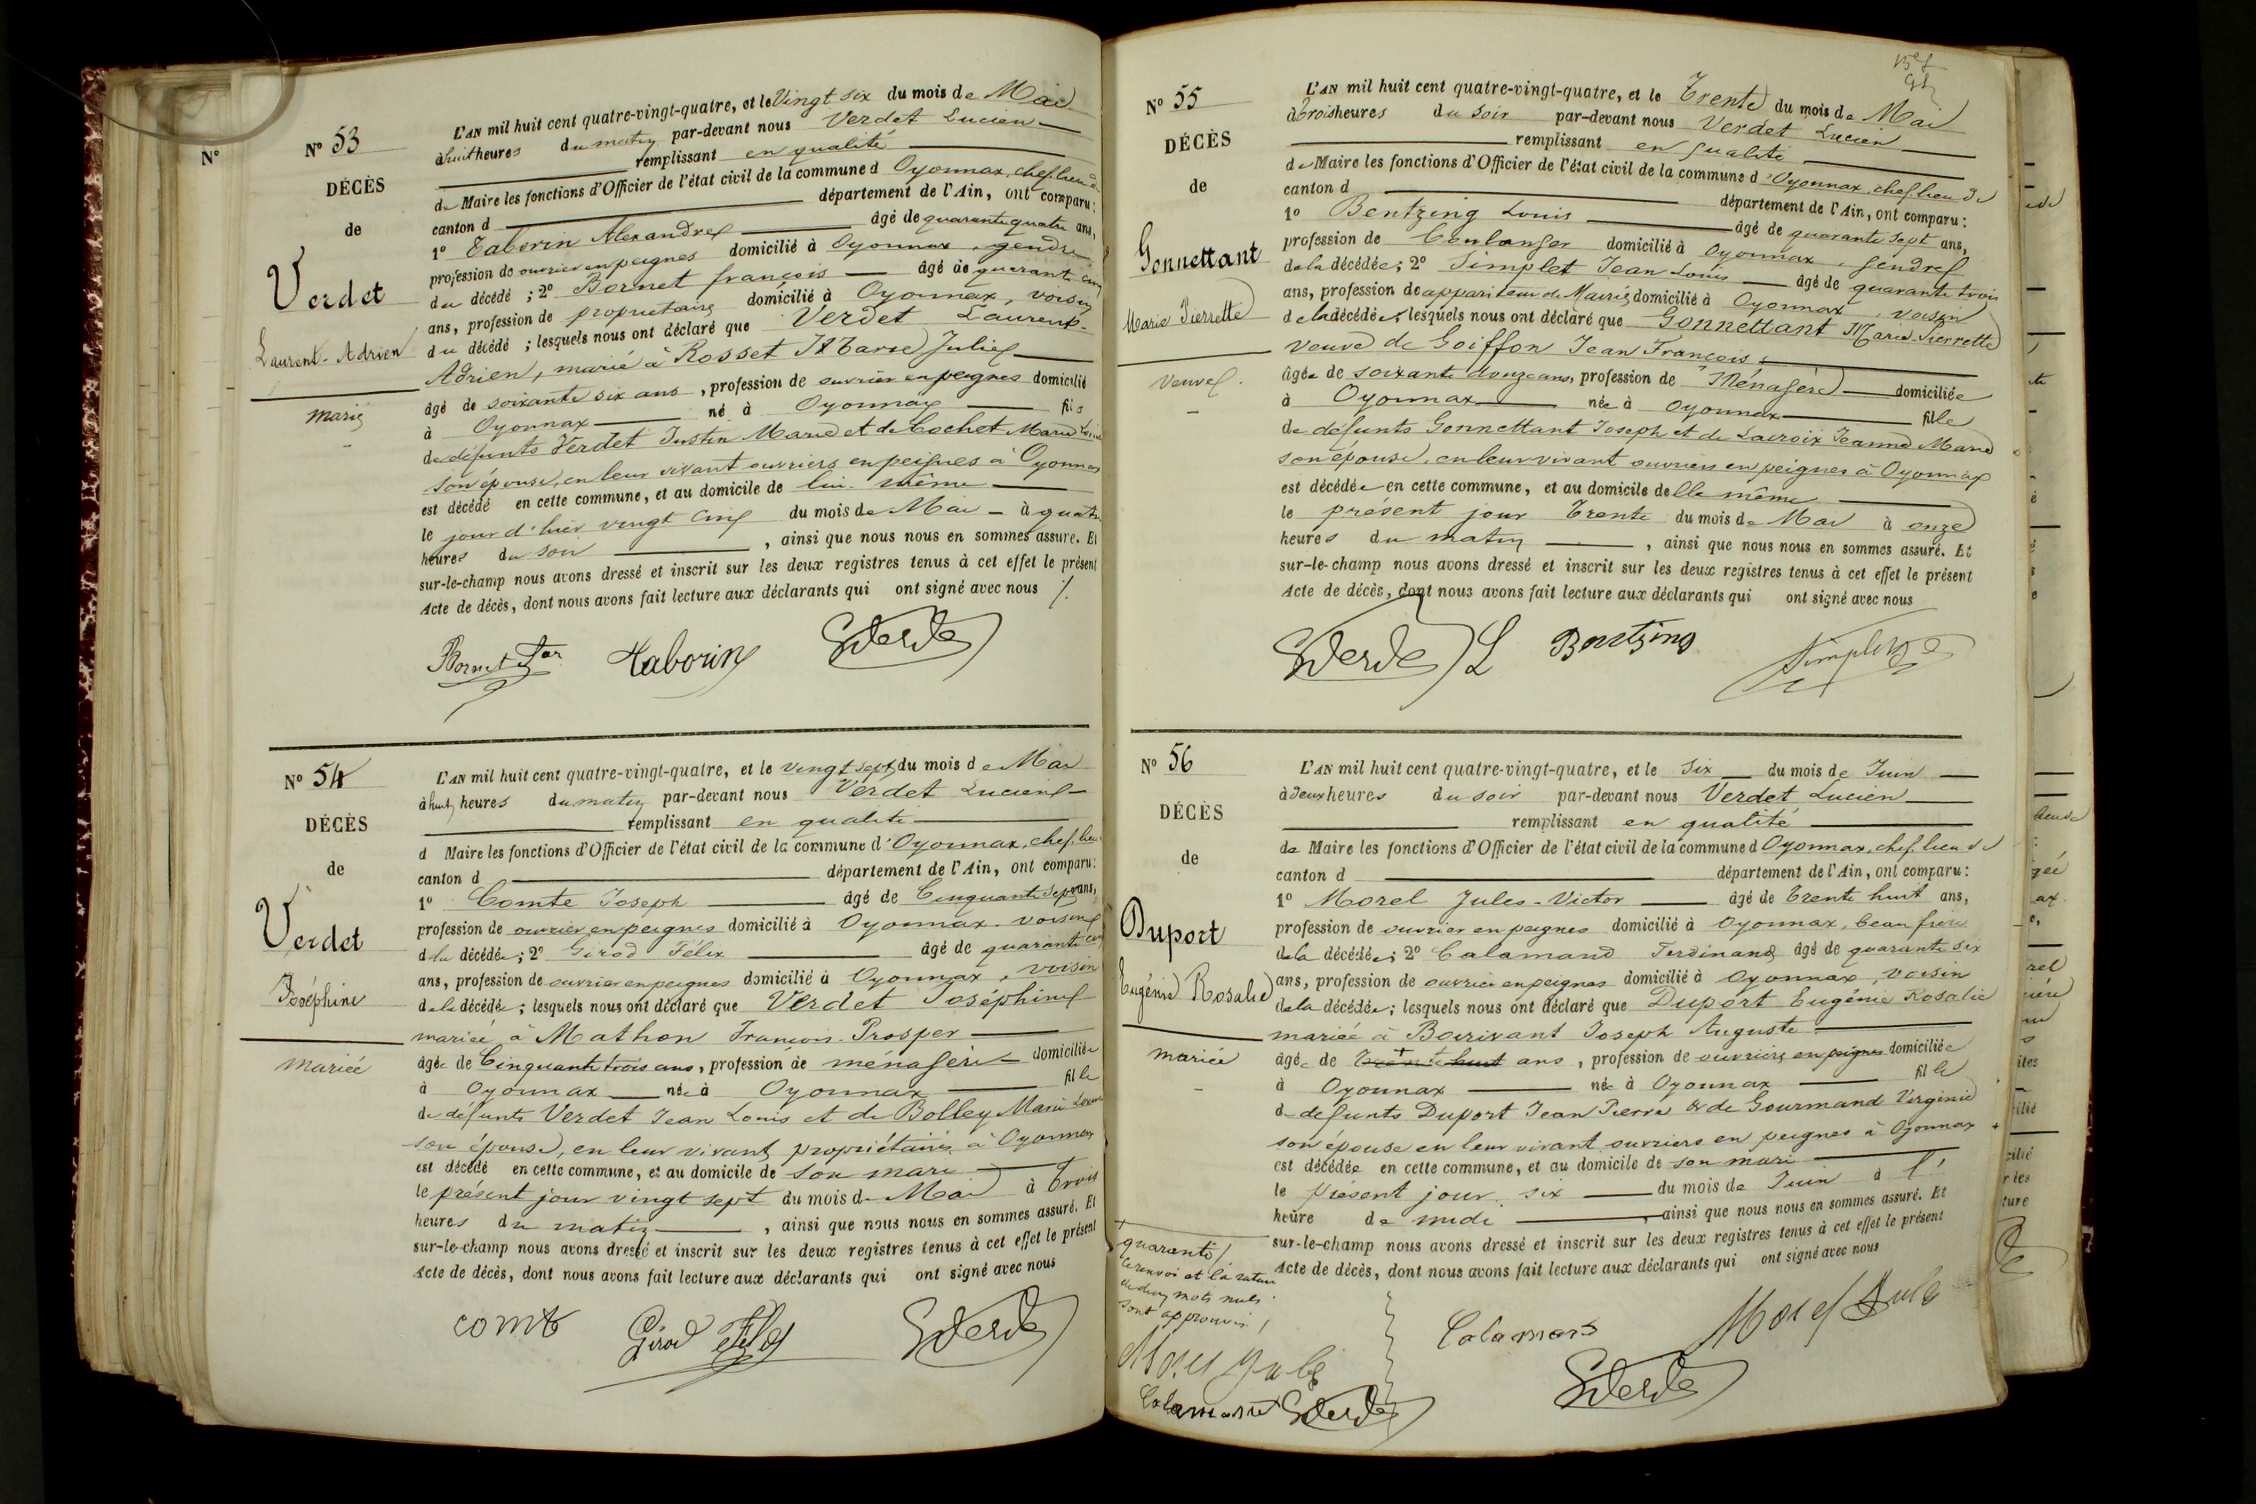 N°
N° 53
DÉCÈS
de
Verdet
Laurent-Adrien
marié
L'AN mil huit cent quatre-vingt-quatre, et le Vingt six du mois de Mai
à huit heures du matin par-devant nous Verdet Lucien
remplissant en qualité
de Maire les fonctions d'Officier de l'état civil de la commune d Oyonnax, chef lieu de
canton d département de l'Ain, ont comparu:
1° Taborin Alexandre âgé de quarante quatre ans,
profession de ouvrier en peignes domicilié à Oyonnax, gendre
du décédé ; 2° Bornet françois âgé de quarante cinq
ans, profession de propriétaire domicilié à Oyonnax, voisin
du décédé ; lesquels nous ont déclaré que Verdet Laurent-
Adrien, marié à Rosset Marie Julie
âgé de soixante six ans, profession de ouvrier en peignes domicilié
à Oyonnax né à Oyonnax fils
de défunts Verdet Justin Marie et de Cochet Marie
son épouse, en leur vivant ouvriers en peignes à Oyonnax
est décédé en cette commune, et au domicile de lui-même
le jour d'hier vingt cinq du mois de Mai à quatre
heures du soir, ainsi que nous nous en sommes assuré. Et
sur-le-champ nous avons dressé et inscrit sur les deux registres tenus à cet effet le présent
Acte de décès, dont nous avons fait lecture aux déclarants qui ont signé avec nous ./.
Bornet for Taborin Verdet
N° 54
DÉCÈS
de
Verdet
Joséphine
mariée
L'AN mil huit cent quatre-vingt-quatre, et le vingt sept du mois de Mai
à huit heures du matin par-devant nous Verdet Lucien
remplissant en qualité
d Maire les fonctions d'Officier de l'état civil de la commune d'Oyonnax, chef lieu
canton d département de l'Ain, ont comparu:
1° Comte Joseph âgé de Cinquante sept ans,
profession de ouvrier en peignes domicilié à Oyonnax. voisin
d la décédée; 2° Girod Félix âgé de quarante cinq
ans, profession de ouvrier en peignes domicilié à Oyonnax, voisin
de la décédée; lesquels nous ont déclaré que Verdet Joséphine
mariée à Mathon François-Prosper
âgée de Cinquante trois ans, profession de ménagère domiciliée
à Oyonnax née à Oyonnax fille
de défunts Verdet Jean Louis et de Bolley Marie
son épouse, en leur vivant propriétaires à Oyonnax
est décédé en cette commune, et au domicile de son mari
le présent jour vingt sept du mois de Mai à trois
heures du matin, ainsi que nous nous en sommes assuré. Et
sur-le-champ nous avons dressé et inscrit sur les deux registres tenus à cet effet le présent
Acte de décès, dont nous avons fait lecture aux déclarants qui ont signé avec nous
comte Girod Félix Verdet
N° 55
DÉCÈS
de
Gonnettant
Marie Pierrette
veuve.
L'AN mil huit cent quatre-vingt-quatre, et le Trente du mois de Mai
à trois heures du soir par-devant nous Verdet Lucien
remplissant en qualité
de Maire les fonctions d'Officier de l'état civil de la commune d'Oyonnax, chef lieu de
canton d département de l'Ain, ont comparu:
1° Bentzing Louis âgé de quarante sept ans,
profession de boulanger domicilié à Oyonnax, gendre
de la décédée; 2° Simplet Jean Louis âgé de quarante trois
ans, profession de appariteur de Mairie domicilié à Oyonnax, voisin
de la décédée, lesquels nous ont déclaré que Gonnettant Marie Pierrette
veuve de Goiffon Jean François,
âgée de soixante douze ans, profession de Ménagère domiciliée
à Oyonnax née à Oyonnax fille
de défunts Gonnettant Joseph et de Lacroix Jeanne Marie
son épouse, en leur vivant ouvriers en peignes à Oyonnax
est décédée en cette commune, et au domicile delle même
le présent jour Trente du mois de Mai à onze
heures du matin, ainsi que nous nous en sommes assuré. Et
sur-le-champ nous avons dressé et inscrit sur les deux registres tenus à cet effet le présent
Acte de décès, dont nous avons fait lecture aux déclarants qui ont signé avec nous
Verdet L Bentzing Simplet
N° 56
DÉCÈS
de
Duport
Eugénie Rosalie
mariée
L'AN mil huit cent quatre-vingt-quatre, et le Six du mois de Juin
à deux heures du soir par-devant nous Verdet Lucien
remplissant en qualité
de Maire les fonctions d'Officier de l'état civil de la commune d Oyonnax, chef lieu de
canton d département de l'Ain, ont comparu:
1° Morel Jules-Victor âgé de trente huit ans,
profession de ouvrier en peignes domicilié à Oyonnax, beau frère
de la décédée; 2° Calamand Ferdinand âgé de quarante six
ans, profession de ouvrier en peignes domicilié à Oyonnax, voisin
de la décédée; lesquels nous ont déclaré que Duport Eugénie Rosalie
mariée à Barivant Joseph Auguste
âgée de trente huit ans, profession de ouvrière en peignes domiciliée
à Oyonnax née à Oyonnax fille
de défunts Duport Jean Pierre & de Gourmand Virginie
son épouse en leur vivant ouvriers en peignes à Oyonnax
est décédée en cette commune, et au domicile de son mari
le présent jour six du mois de Juin à l'
heure de midi, ainsi que nous nous en sommes assuré. Et
sur-le-champ nous avons dressé et inscrit sur les deux registres tenus à cet effet le présent
Acte de décès, dont nous avons fait lecture aux déclarants qui ont signé avec nous
+ quarante/
le renvoi et la rature
de deux mots nuls
sont approuvés/
Calamand Morel Jules
Morel Jules
Calamand Verdet Verdet